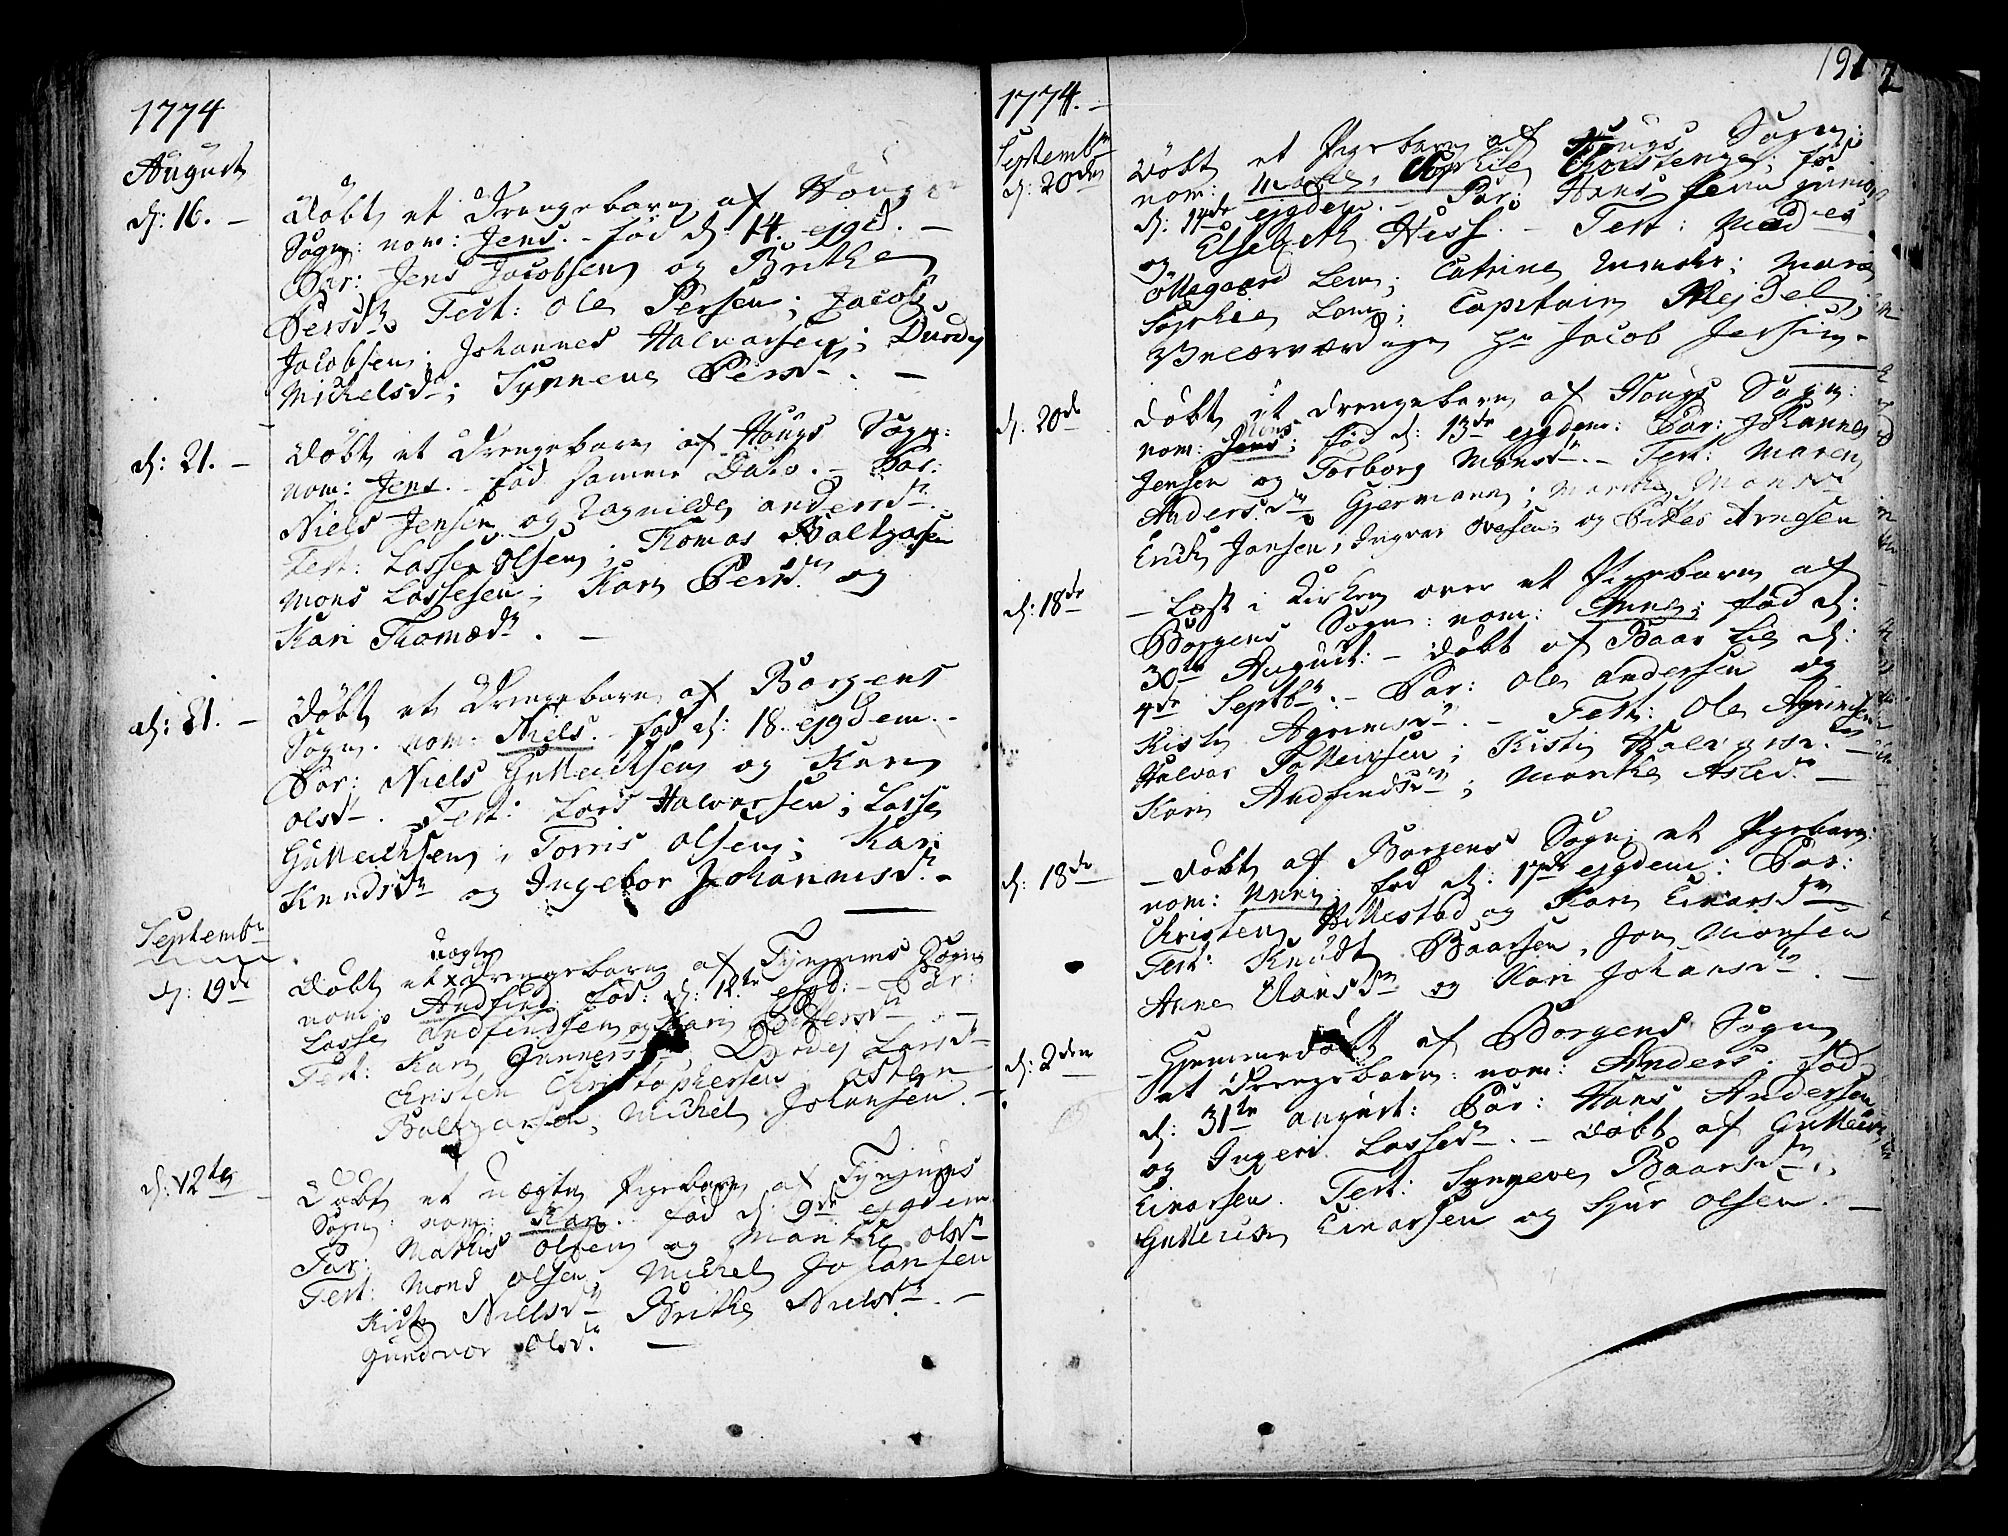 1774
August
d: 16. –
Døbt et Drengebarn af Hougs
Sogn: nom: Jens. – fød d: 14. ejgd. –
Par: Jens Jacobsen og Brithe
Persdr Test: Ole Persen; Jacob
Jacobsen; Johannes Halvorsen; Durdej
Michelsdr; Synneve Persdr. –
d: 21. –
Døbt et Drengebarn af Hougs Sogn:
nom: Jens. – fød samme Dato. – Par:
Niels Jensen og Ragnilde Andersdr.
Test: Lasse Olsen; Thomas Baltzersen
Mons Lassesen; Kari Persdr og
Kari Thomædr. –
d: 21. –
Døbt et Drengebarn af Borgens
Sogn. nom: Niels. – fød d: 18. ejgdem. –
Par: Niels Gutterichsen og Kari
Olsdr. Test: Lars Halvorsen; Lasse
Gutterichsen; Torris Olsen; Kari
Knudsdr og Ingebor Johannesdr. –
Septembr
d: 19de
Døbt et uægte Drengebarn af Tynjums Sogn
nom: Andfind. fød: d: 18te ejgd: – Par:
Lasse Andfindsen og Kari Pittersdr. –
Test: Kari Gunnersdr, Dordej Larsdr
Christen Christophersen, Osten
Baltzersen, Michel Johansen. –
d: 12te
Døbt et uægte Pigebarn af Tynjums
Sogn: nom: Kari. fød d: 9de ejgdem
Par: Mathis Olsen og Marithe Olsdr
Test: Mons Olsen; Michel Johansen
Kisti Nielsdr Brithe Nielsdr. –
Gundvor Olsdr. –
191
1774. –
Septembr
d: 20den
Døbt et Pigebarn af Hougs Sogn:
nom: Marte Sophie Christense; fød
d: 14de ejgdem. – Par: Hans Lem junior
og Elsebeth Hess. – Test: Mad:es
Øllegaard Lem; Catrine; Maren
Sophie Lem; Capitain Mejdel;
Velærværdige Hr Jacob Jersin. –
d. 20de
Døbt et Drengebarn af Hougs Sogn:
nom: Jens; fød d: 13de ejgdem: Par: Johannes
Jensen og Torborg Monsdr. – Test: Maren
Andersdr Gjermann; Marithe Monsdr
Erich Jonsen; Ingvar Ovesen; og Peter Arnesen
d: 18de
– Læst i Kirken over et Pigebarn af
Borgens Sogn: nom: Anne; fød d:
30te August: – døbt af Baar Lie d:
4de Septbr. – Par: Ole Andersen og
Kisti Agrimsdr. – Test: Ole Agrimsen
Halvor Sollevsen; Kisti Halvorsdr. –
Kari Andfindsdr; Marithe Aslesdr. –
d: 18de
– Døbt af Borgens Sogn et Pigebarn:
nom: Anni; fød d: 17de ejgdem: Par:
Christen Hillestad og Kari Einarsdr
Test: Knudt Baarsen, Jon Monsen
Anne Clausdr og Kari Johansdr. –
d: 2den
– Hjemmedøbt af Borgens Sogn
et Drengebarn: nom: Anders; fød
d: 31te August: Par: Hans Andersen
og Ingeri Lassedr. – døbt af Gutterm
Einarsen. Test: Synneve Baarsdr;
Gutterm Einarsen og Sjur Olsen. –